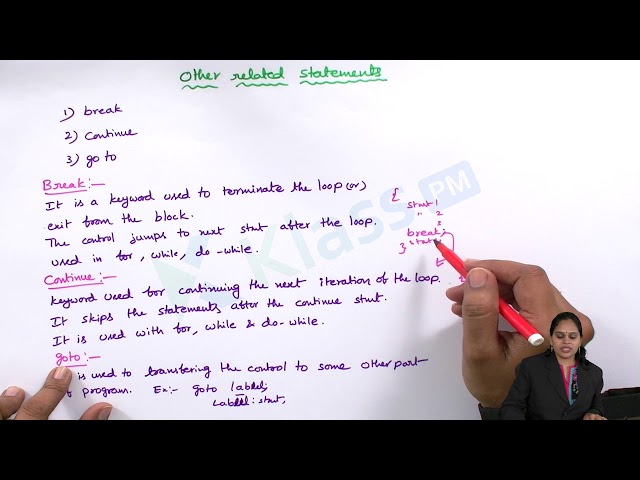 Other related statements
1) break
2) Continue
3) go to
Break:-
It is a keyword used to terminate the loop (or)
exit from the block.
The control jumps to next stmt after the loop.
used in for, while, do-while.
{
stmt 1
" 2
3
break;
} stmt
Continue:-
keyword used for continuing the next iteration of the loop.
It skips the statements after the continue stmt.
It is used with for, while & do-while.
goto:-
is used to transfering the control to some other part
program. Ex:- goto label;
Label: stmt;
Klass PM